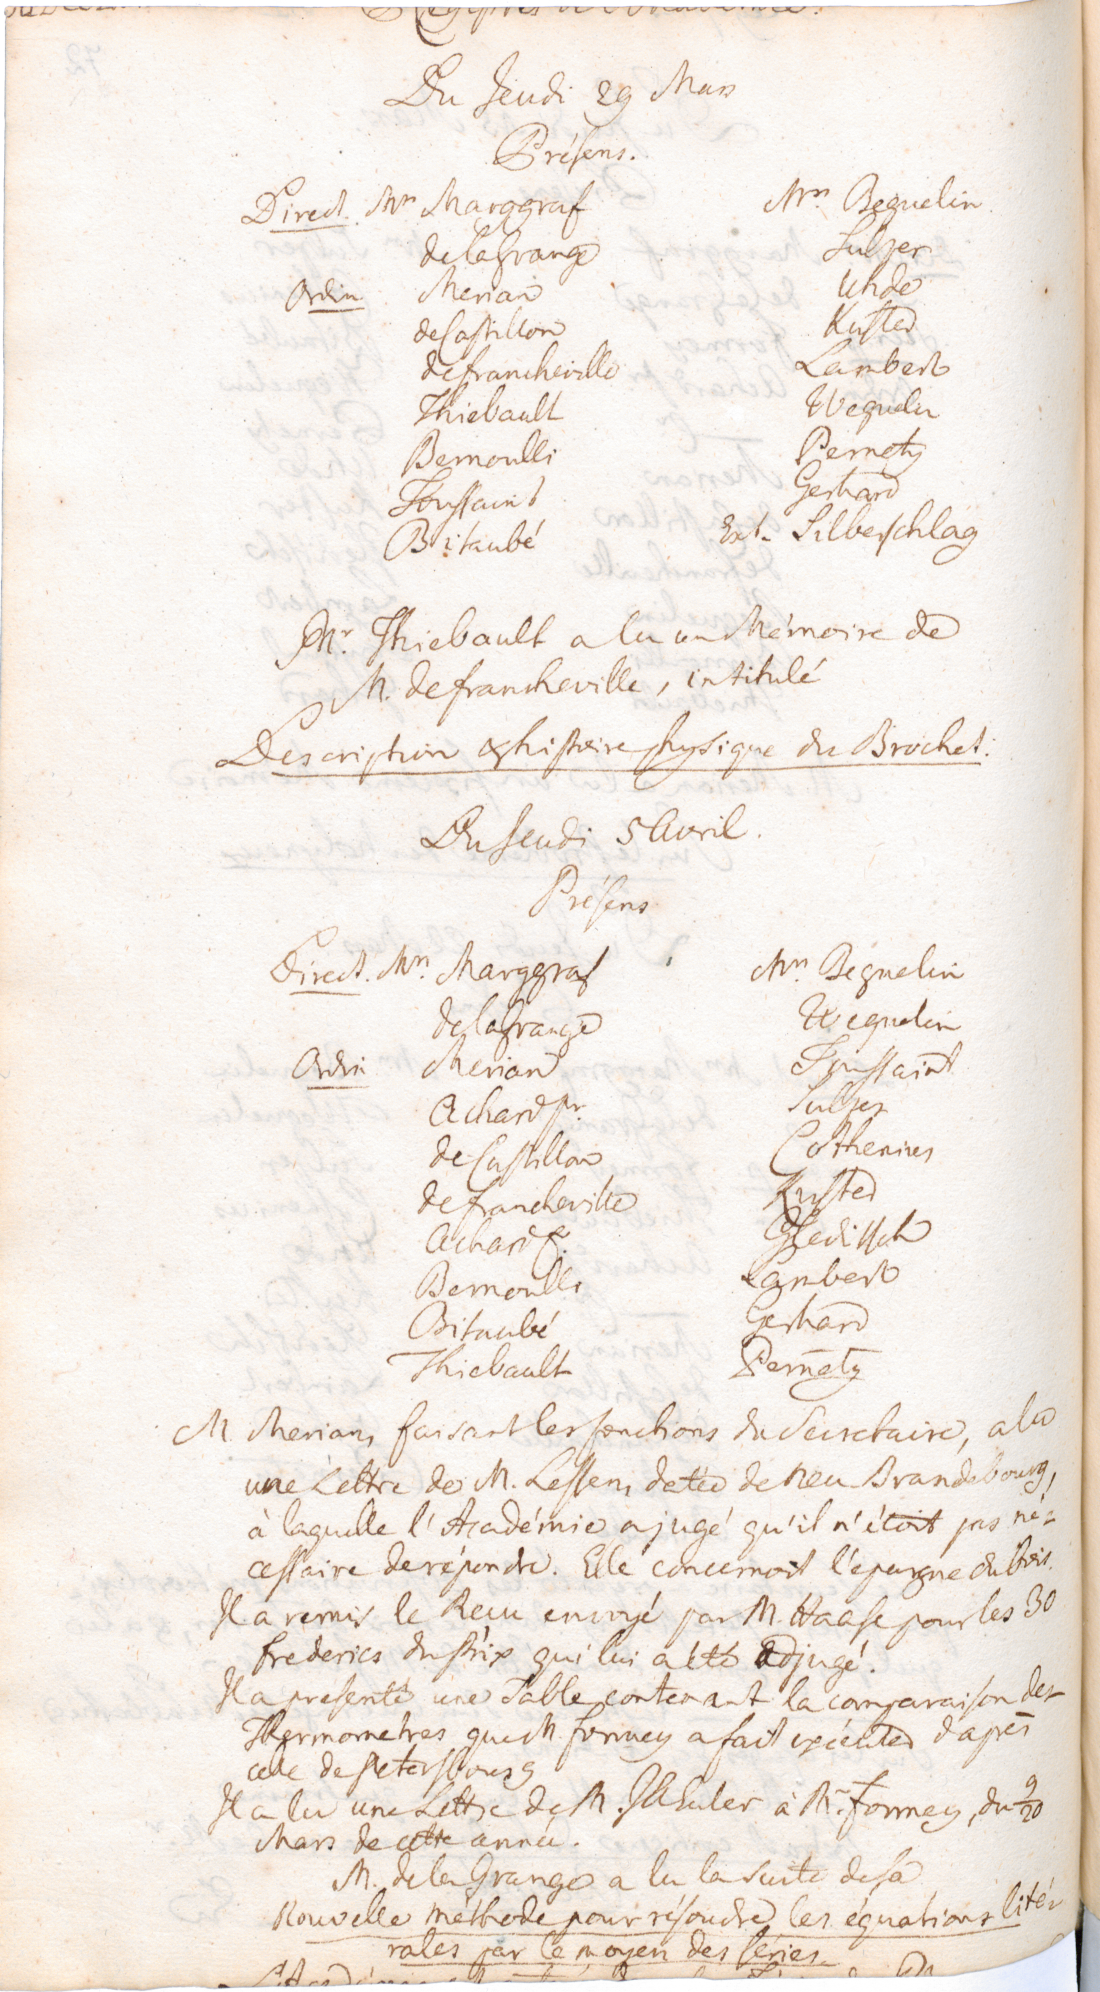 Registres de l'Académie.
Du Jeudi 29 Mars
Présens.
Direct. Mrs Marggraf Mrs Beguelin
de la Grange Sulzer
Ordin Merian Uhde
de Castillon Kuster
de Francheville Lambert
Thiebault Weguelin
Bernoulli Pernety
Toussaint Gerhard
Bitaubé Ext. Silberschlag
Mr. Thiebault a lu un Mémoire de
M. de Francheville, intitulé
Description & histoire physique du Brochet.
Du Jeudi 5 Avril.
Présens
Direct. Mrs. Marggraf Mrs. Beguelin
de la Grange Weguelin
Ordin Merian Toussaint
Achard pr. Sulzer
de Castillon Cothenius
de Francheville Kuster
Achard f. Gleditsch
Bernoulli Lambert
Bitaubé Gerhard
Thiebault Pernety
M. Merian, faisant les fonctions du Secretaire, a lu
une Lettre de M. Lessen, datée de Neu Brandebourg,
à laquelle l'Académie a jugé qu'il n'étoit pas né-
cessaire de répondre. Elle concernoit l'épargne du bois.
Il a remis le Recu envoyé par M. Haase pour les 30
frederics du Prix qui lui a été adjugé.
Il a presenté une Table contenant la comparaison des
Thermometres que M. Formey a fait exécuter d'après
celle de Petersbourg
Il a lu une Lettre de M. J. A. Euler à Mr. Formey, du 9/20
Mars de cette année.
M. de la Grange a lu la suite de sa
Nouvelle méthode pour résoudre les équations litté-
rales par le moyen des séries.